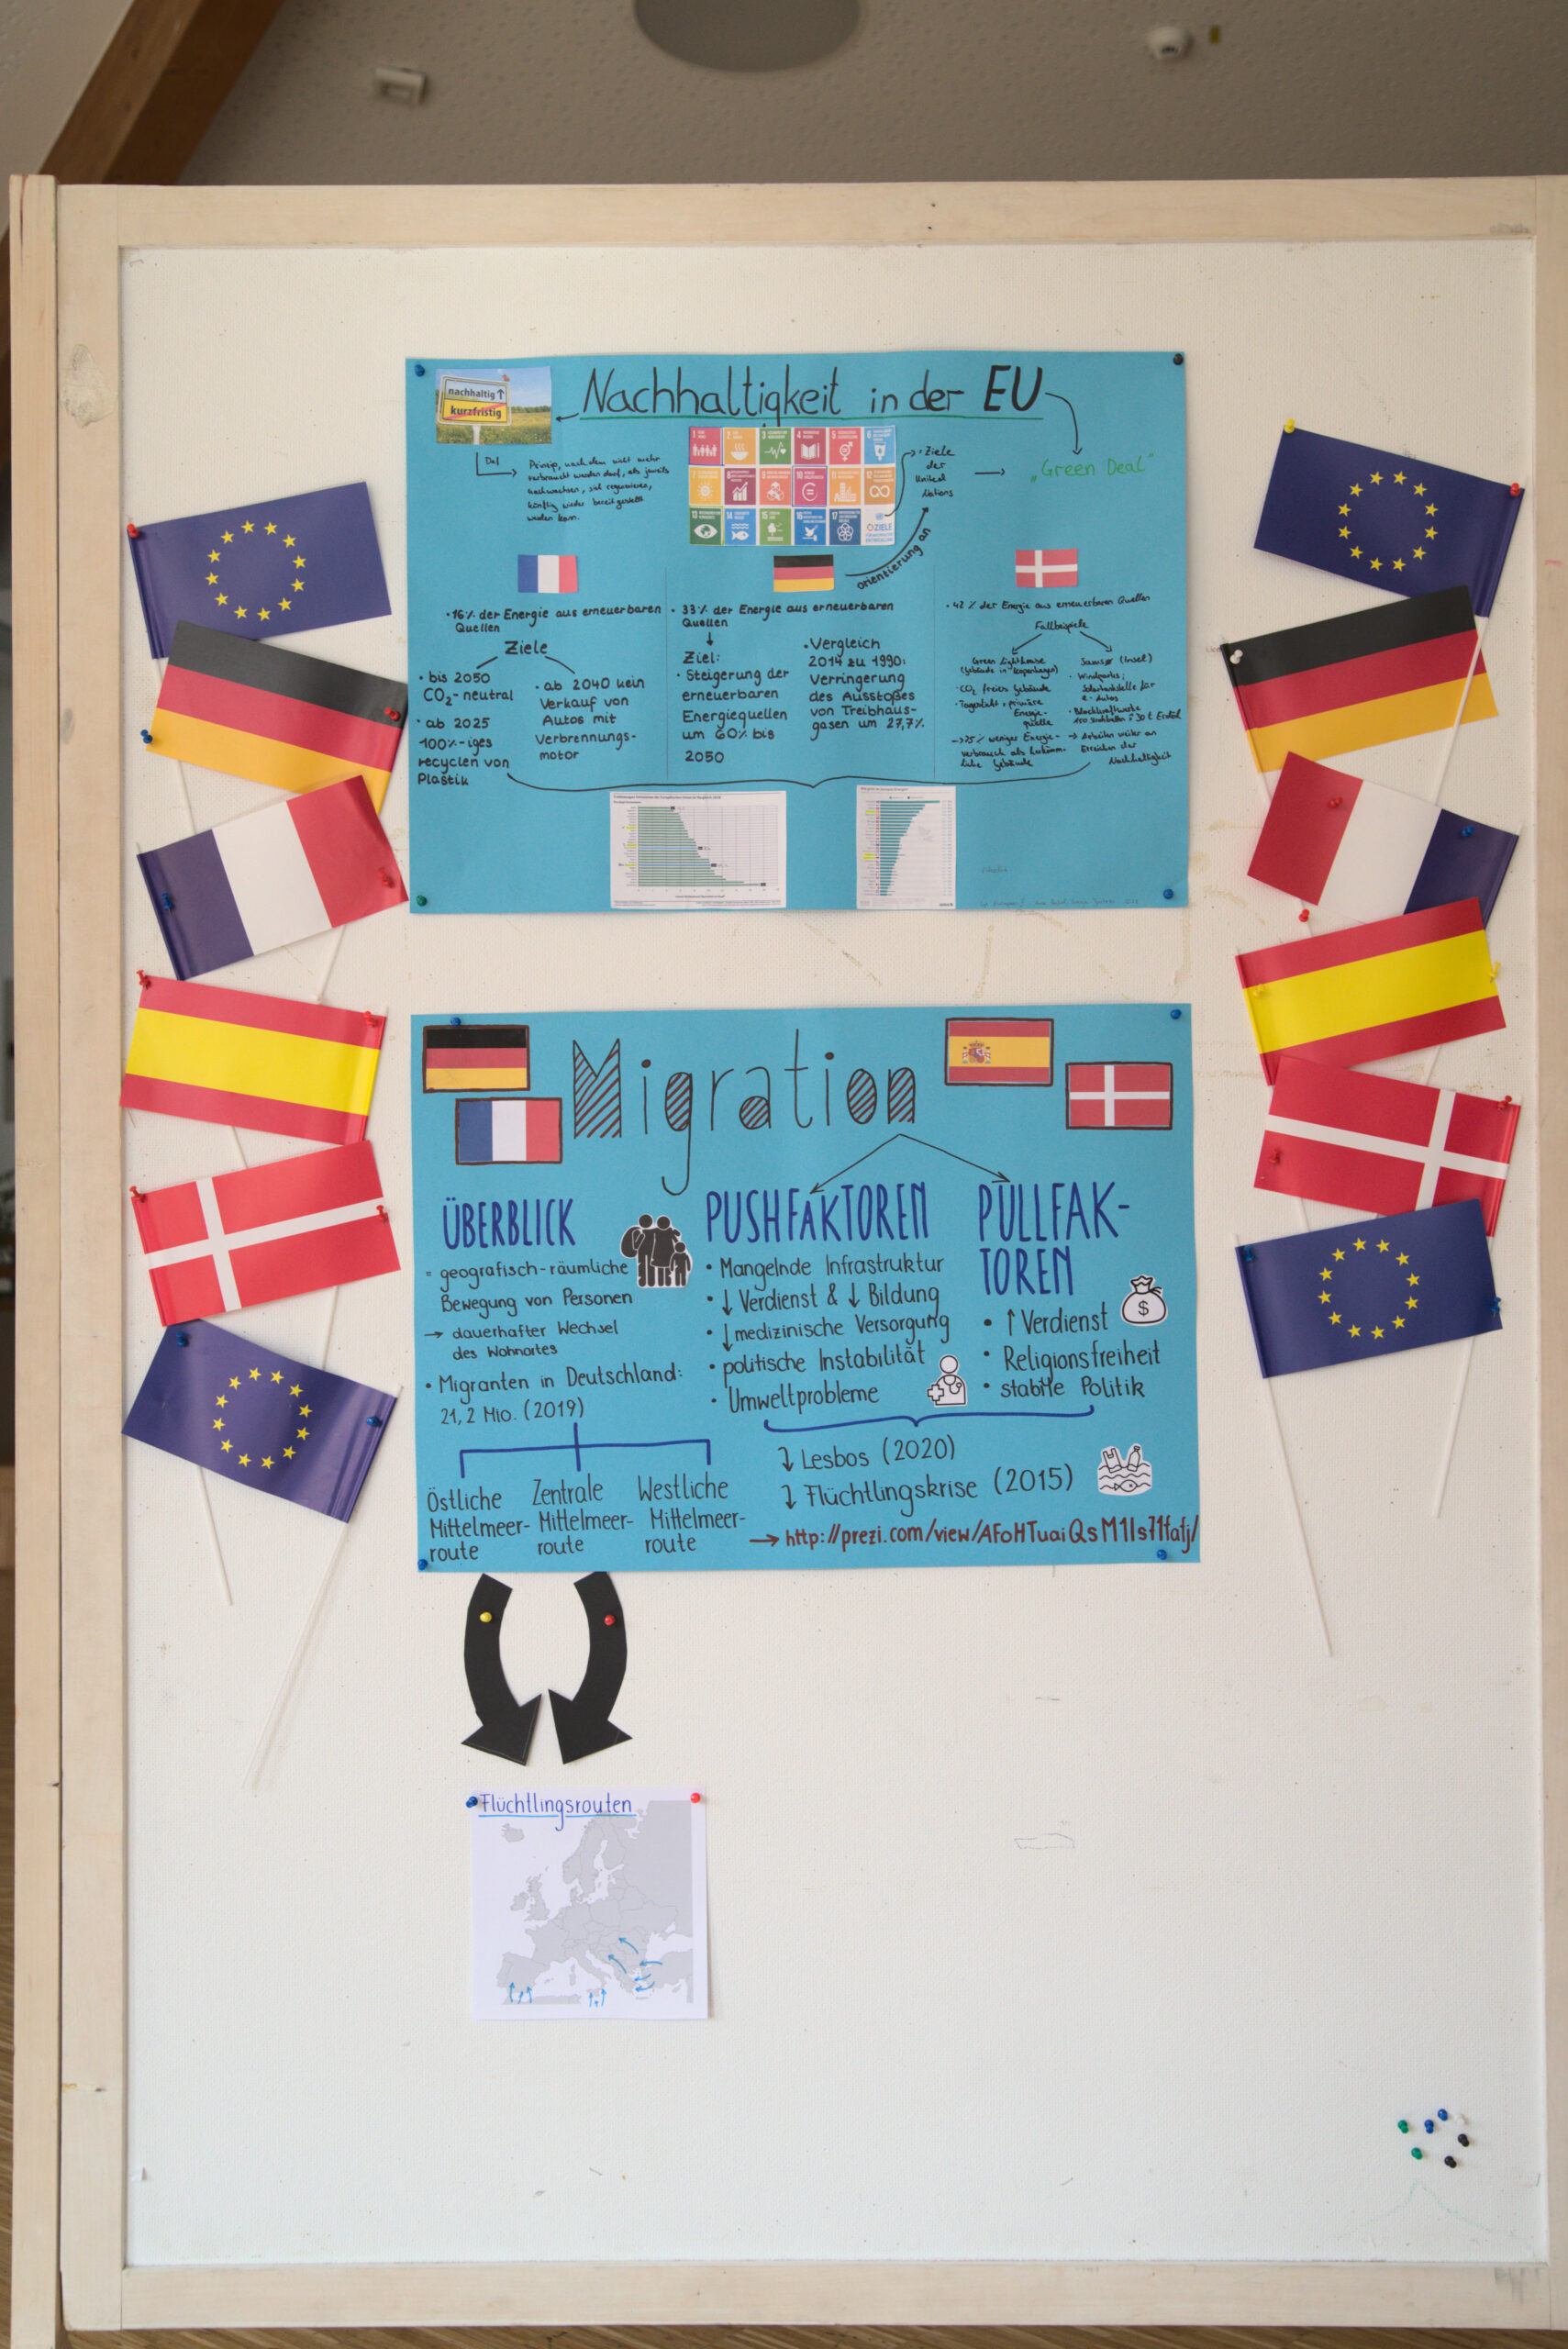 Nachhaltigkeit in der EU
nachhaltig ↑
kurzfristig
Def
Prinzip, nach dem nicht mehr
verbraucht werden darf, als jeweils
nachwachsen, sich regenerieren,
künftig wieder bereitgestellt
werden kann.
ZIELE
→ Ziele
der
United
Nations
→
„Green Deal"
orientierung an
• 16% der Energie aus erneuerbaren
Quellen
Ziele
• bis 2050
CO₂-neutral
• ab 2025
100%-iges
recyclen von
Plastik
• ab 2040 kein
Verkauf von
Autos mit
Verbrennungs-
motor
• 33% der Energie aus erneuerbaren
Quellen
↓
Ziel:
• Steigerung der
erneuerbaren
Energiequellen
um 60% bis
2050
• Vergleich
2014 zu 1990:
Verringerung
des Ausstoßes
von Treibhaus-
gasen um 27,7%
• 42 % der Energie aus erneuerbaren Quellen
Fallbeispiele
Green Lighthouse
(Gebäude in Kopenhagen)
• CO₂ freies Gebäude
• Tageslicht = primäre
Energie-
quelle
→ 75% weniger Energie-
verbrauch als
Gebäude
(Insel)
• Windparks;
für
e-Autos
→ arbeiten weiter an
Erreichen der
Nachhaltigkeit
Migration
ÜBERBLICK
= geografisch-räumliche
Bewegung von Personen
→ dauerhafter Wechsel
des Wohnortes
• Migranten in Deutschland:
21,2 Mio. (2019)
Östliche
Mittelmeer-
route
Zentrale
Mittelmeer-
route
Westliche
Mittelmeer-
route
PUSHFAKTOREN
• Mangelnde Infrastruktur
• ↓ Verdienst & ↓ Bildung
• ↓ medizinische Versorgung
• politische Instabilität
• Umweltprobleme
PULLFAK-
TOREN
• ↑ Verdienst
$
• Religionsfreiheit
• stabile Politik
↳ Lesbos (2020)
↳ Flüchtlingskrise (2015)
→ http://prezi.com/view/AFoHTuaiQsM1ls71fafj/
Flüchtlingsrouten